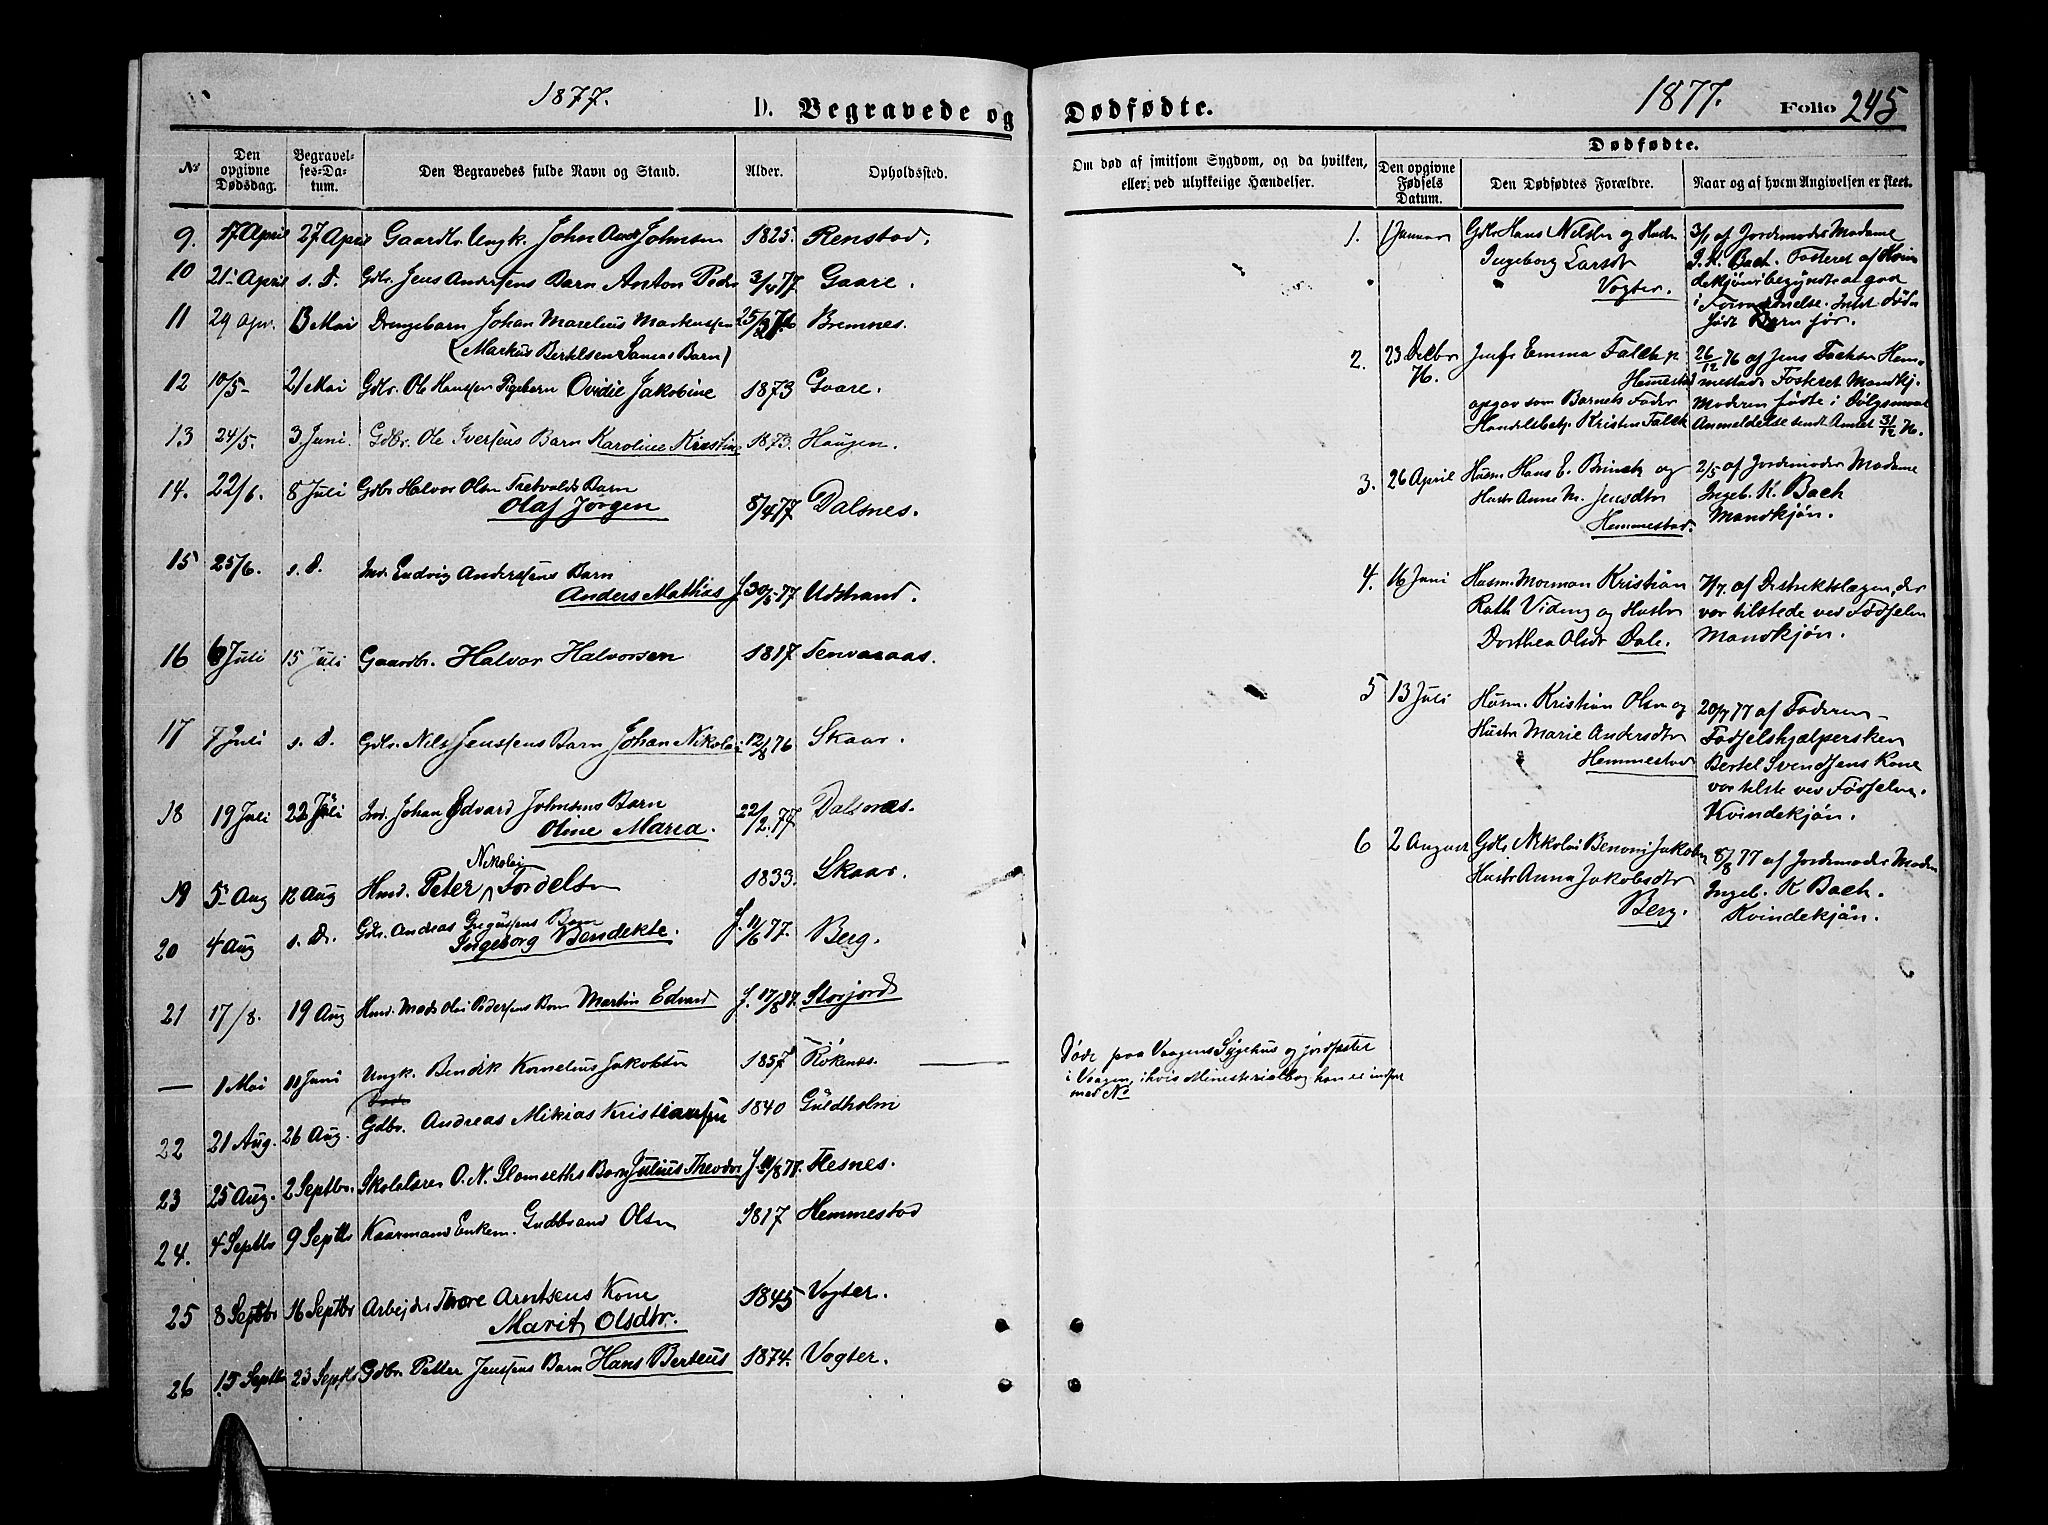 1877.
D. Begravede og
Dødfødte.
1877.
Folio 245
No
Den opgivne Dødsdag.
Begravelses-Datum.
Den Begravedes fulde Navn og Stand.
Alder.
Opholdssted.
Om død af smitsom Sygdom, og da hvilken, eller ved ulykkelige Hændelser.
Dødfødte.
Den opgivne Fødsels Datum.
Den Dødfødtes Forældre.
Naar og af hvem Angivelsen er skeet.
9. 17 April 27 April Gaardbr. Ungk. John Johnsen 1825. Renstad.
10 21 April s. D. Gdbr. Jens Andersens Barn Anton Peder 3/4 77 Gaare.
11 29 Apr. 13 Mai Drengebarn Johan Marelius Markussen Bremnes.
(Markus Bertelsen Samas Barn)
12 10/5- 21 Mai Gdbr. Ole Hanssen Pigebarn Ovidie Jakobine 1873 Gaare.
13 24/5. 3 Juni. Gdbr. Ole Iversens Barn Karoline Kristin 1873. Haugen.
14. 22/6. 8 Juli Gdbr Halvor Olsn Tretvolds Barn
Olaf Jörgen 8/4 77 Dalsnes.
15 25/6. s. D. Ind. Ludvig Anderssens Barn
Anders Mathias f. 30/5 77 Udstrand.
16 6 Juli 15 Juli Gaardbr. Halvor Halvorsen 1817 Tenvasaas.
17 7 Juli s. D. Gdbr. Nils Jenssens Barn Johan Nikolai 12/8 76 Skaar.
18 19 Juli 22 Juli Ind. Johan Edvard Johnsens Barn
Oline Maria. 22/2 77 Dalsnes.
Nikolai
19 5 Aug 12 Aug Hmd. Peter Fordelsn 1833. Skaar.
20 4 Aug s. D. Gdbr. Andreas Gregussens Barn
Ingeborg Bendekte. f. 11/6 77. Berg.
21 17/8. 19 Aug Hmd. Mads Olai Pedersens Barn Martin Edvard f. 17/8 77. Storjord
— 1 Mai 11 Juni Ungk. Bendik Kornelius Jakobsen 1857 Røknes. —
22 21 Aug. 26 Aug. Gdbr. Andreas Mikias Kristianssen 1840 Guldholm
23 25 Aug. 2 Septbr. Skolelærer O. N. Glomseths Barn Julius Theodor f. 11/8 77. Flesnes.
24. 4 Septbr 9 Septbr Kaarmand Enkem. Gudbrand Olsn 1817 Hemmestad
25 8 Septbr 16 Septbr Arbejder Thore Arntsens Kone
Marit Olsdtr. 1845 Vogter.
26 15 Septbr 23 Septbr Gdbr. Petter Jenssens Barn Hans Berteus 1874. Vogter.
Døde paa Vaagens Sygehus og jordfæstet
i Vaagen, i hvis Ministerialbog han er indført
med No
1. 1 Januar Gdbr Hans Nilsen og Hustr
Ingeborg Larsdtr
Vogter.
3/1 af Jordemoder Madame
I. K. Bach. Fosteret af Kvin
dekjön begyndt at gaa
i Forraadnelse. Intet Födsn
født Barn før.
2. 23 Decbr 76. Jmfr Emma Falch p.
Hemmestad
opgav som Barnets Fader
Handelsbetj. Kristen Falch
26/12 76 af Jens Hem-
mestad. Fosteret Mandkj.
Moderen fødte i Dølgsmaal
Anmeldelse sendt Amtet 31/12 76.
3. 26 April Husm. Hans E. Brinch og
Hustr Anne M. Jensdtr
Hemmestad.
2/5 af Jordemoder Madame
Ingeb. K. Bach
Mandkjön.
4. 16 Juni Husm. Norman Kristian
Rath Viding og Hustr
Dorthea Olsdr Dale.
7/7. af Distriktslægen, der
var tilstede ved Fødselen
Mandkjön.
5 13 Juli Husm. Kristian Olsn og
Hustr Marie Andersdtr
Hemmestad
20/7 77 af Faderen –
Fødselshjælpersken
Bertel Svendsens Kone
var tilste ved Fødselen.
Kvindekjön.
6 2 August Gdbr Nikolai Benoni Jakobsn
Hustr Anna Jakobsdtr
Berg.
8/8 77 af Jordemoder Madm
Ingeb. K Bach.
Kvindekjön.